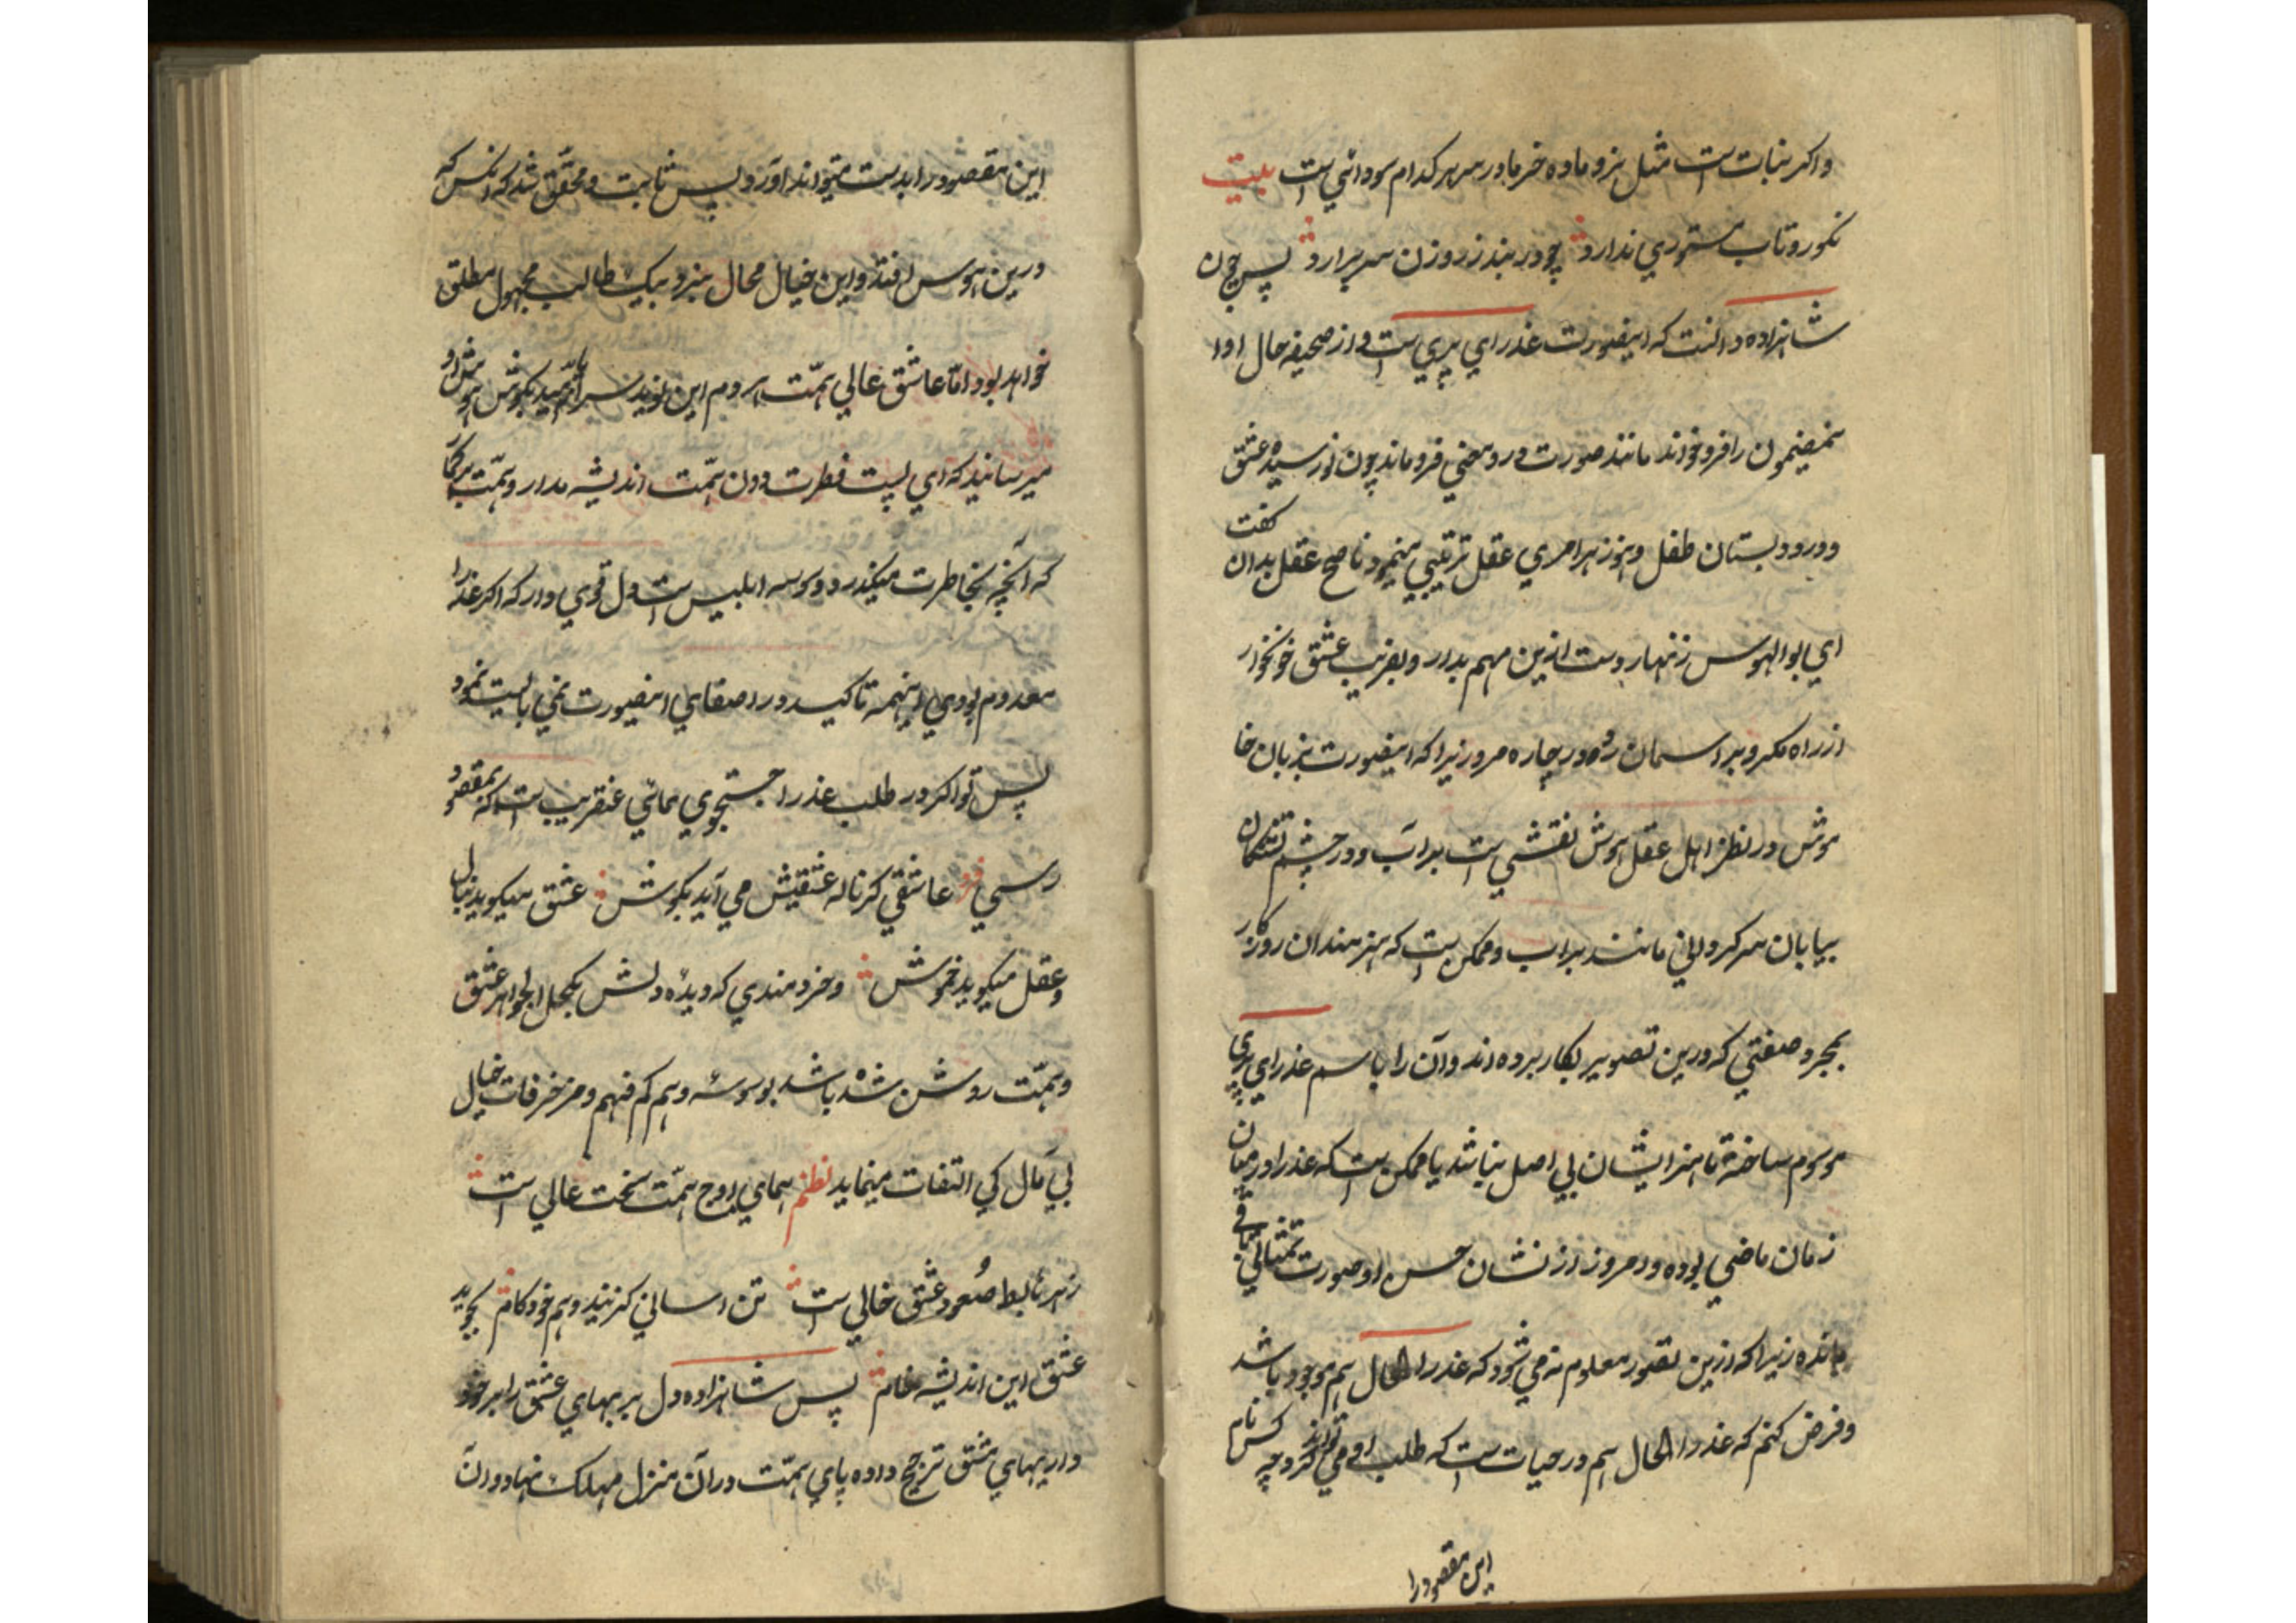 واکر نبات است مثل نر و ماده خرما در سر هر کدام سودائي است بیت
نکو رو تاب مستوري ندارد چو در بندز روزن سر برارد پس چون
شاهزاده دانست که اینصورت عذراي پري است و از صحیفه حال او
مضمون را فرو خواند مانند صورت در و معني فرو ماند چون نو رسیده عشق
و در دبستان طفل و هنوز هر امري عقل ترتیبي مینمود ناصح عقل بدان کفت
اي بوالهوس زنهار دست ازین مهم بدار و بفریب عشق خونخوار
از راه مکرو بر اسمان رود در چاره مرو زیرا که اینصورت بزبان خا
موش در نظر اهل عقل و هوش نقشي است بر آب و در چشم تشنکان
بیابان سر کرداني مانند سراب و ممکن است که هنرمندان روزکار
بمجرد صنعتي که درین تصویر بکار برده اند و آن را باسم عذراي پري
موسوم ساخته تا هنر ایشان بي اصل نباشد یا ممکن است که عذرا در میان
زمان ماضي بوده و امروز از نشان حسن او صورت تمثالي باقي
مانده زیرا که ازین تصور معلوم نه مي شود که عذرا الحال هم موجود باشد
و فرض کنم که عذرا الحال هم در حیات است که طلب او مي تواند کرد و چه کس نام
این مقصود را
این مقصود را بدست میتواند آورد پس ثابت و محقّق شد که انکس که
درین هوس افتد و این خیال محال پزد بیک طالب مجهول مطلق
خواهد بود امّا عاشق عالي همّت هر دم این نوید سراپا امّید بکوش هوش او
میرسانید که اي پست فطرت دون همّت اندیشه مدار و همّت برکمار
که آنچه بخاطرت میکذرد وسوسه ابلیس است دل قوي دار که اکر عذرا
معدوم بودي اینهمه تاکید در اصفاي اینصورت نمي بایست نمود
پس تو اکر در طلب عذرا جستجوي نمائي عنقریب است که بمقصود
رسي فرد عاشقي کز ناله عشقیش مي آید بکوش عشق میکوید بنال
و عقل میکوید خموش و خردمندي که دیدۀ دلش بکحل الجواهر عشق
و همّت روشن شده باشد بوسوسۀ وهم کم فهم و مزخرفات خیال
بي مآل کي التفات مینماید نظم هماي اوج همّت سخت عالي است
زهر سابط صُعود عشق خالي است تن اساني کزیند وهم خودکام بجوید
عشق این اندیشه خام پس شاهزاده دل بر بهاي عشق را بر خود
داریهاي مشق ترجیح داده پاي همّت در آن منزل مهلک نهاد و ان